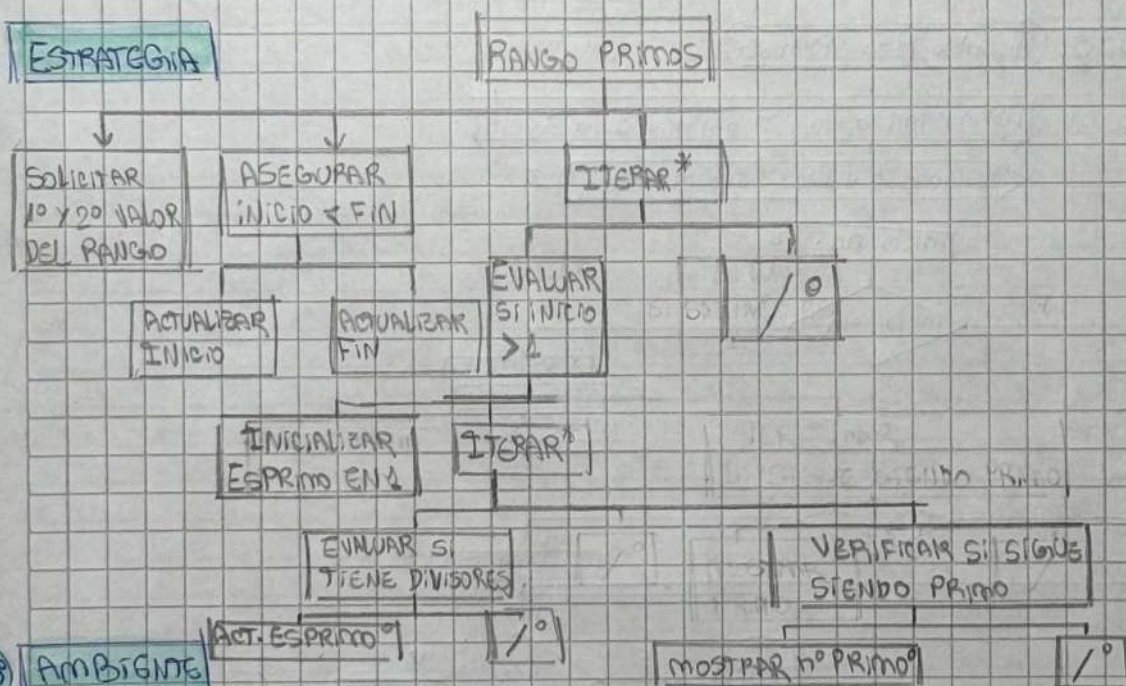 ESTRATEGIA
RANGO PRIMOS
SOLICITAR
1º Y 2º VALOR
DEL RANGO
ASEGURAR
INICIO < FIN
ITERAR*
ACTUALIZAR
INICIO
ACTUALIZAR
FIN
EVALUAR
SI INICIO
>1
/º
INICIALIZAR
ESPRIMO EN 1
ITERAR*
EVALUAR SI
TIENE DIVISORES
VERIFICAR SI SIGUE
SIENDO PRIMO
ACT. ESPRIMOº
/º
MOSTRAR nº PRIMOº
/º
AMBIENTE